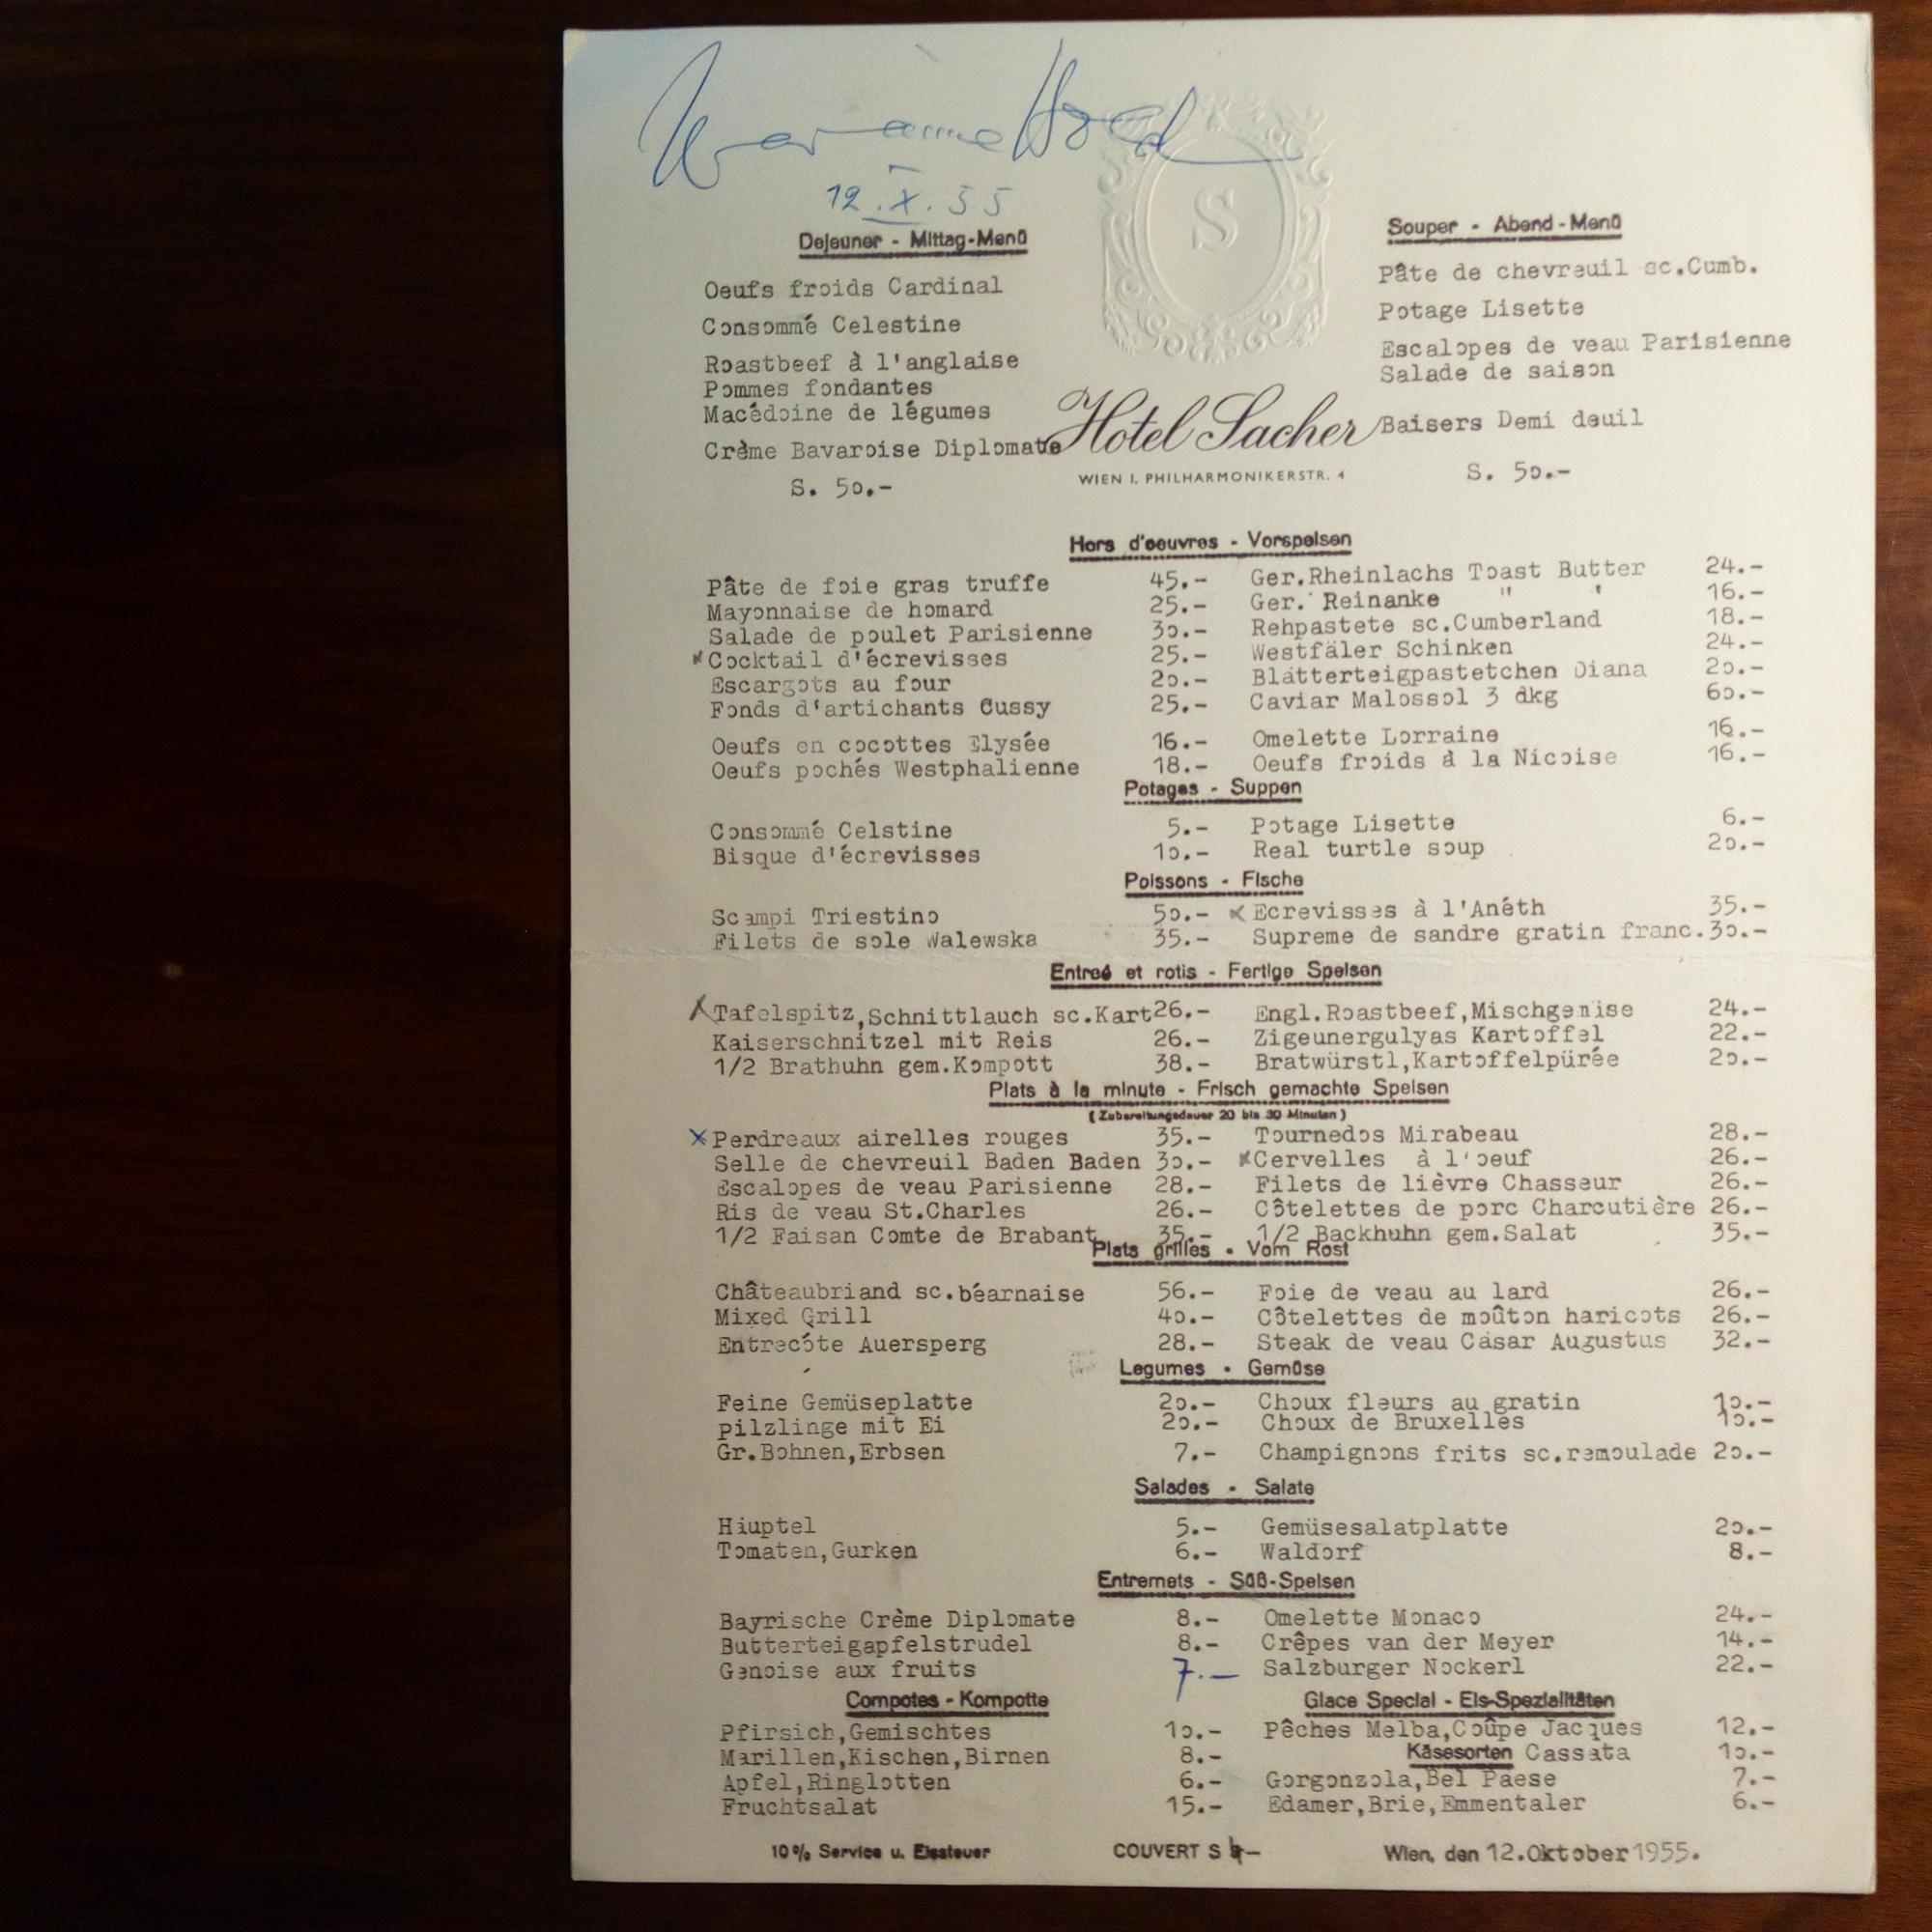 12.X.55
S
Dejeuner - Mittag-Menü
Oeufs froids Cardinal
Consommé Celestine
Roastbeef à l'anglaise
Pommes fondantes
Macédoine de légumes
Crème Bavaroise Diplomate
S. 50.-
Souper - Abend-Menü
Pâte de chevreuil sc.Cumb.
Potage Lisette
Escalopes de veau Parisienne
Salade de saison
Baisers Demi deuil
S. 50.-
Hotel Sacher
WIEN I. PHILHARMONIKERSTR. 4
Hors d'oeuvres - Vorspeisen
Pâte de foie gras truffe 45.- Ger.Rheinlachs Toast Butter 24.-
Mayonnaise de homard 25.- Ger. Reinanke " ' 16.-
Salade de poulet Parisienne 30.- Rehpastete sc.Cumberland 18.-
Cocktail d'écrevisses 25.- Westfäler Schinken 24.-
Escargots au four 20.- Blätterteigpastetchen Diana 20.-
Fonds d'artichants Cussy 25.- Caviar Malossol 3 dkg 60.-
Oeufs en cocottes Elysée 16.- Omelette Lorraine 16.-
Oeufs pochés Westphalienne 18.- Oeufs froids à la Nicoise 16.-
Potages - Suppen
Consommé Celstine 5.- Potage Lisette 6.-
Bisque d'écrevisses 10.- Real turtle soup 20.-
Poissons - Fische
Scampi Triestino 50.- x Ecrevisses à l'Anéth 35.-
Filets de sole Walewska 35.- Supreme de sandre gratin franc.30.-
Entreé et rotis - Fertige Speisen
Tafelspitz,Schnittlauch sc.Kart 26.- Engl.Roastbeef,Mischgemise 24.-
Kaiserschnitzel mit Reis 26.- Zigeunergulyas Kartoffel 22.-
1/2 Brathuhn gem.Kompott 38.- Bratwürstl,Kartoffelpürée 20.-
Plats à la minute - Frisch gemachte Speisen
(Zubereitungsdauer 20 bis 30 Minuten)
x Perdreaux airelles rouges 35.- Tournedos Mirabeau 28.-
Selle de chevreuil Baden Baden 30.- x Cervelles à l'oeuf 26.-
Escalopes de veau Parisienne 28.- Filets de lièvre Chasseur 26.-
Ris de veau St.Charles 26.- Côtelettes de porc Charcutière 26.-
1/2 Faisan Comte de Brabant 35.- 1/2 Backhuhn gem.Salat 35.-
Plats grillés - Vom Rost
Châteaubriand sc.béarnaise 56.- Foie de veau au lard 26.-
Mixed Grill 40.- Côtelettes de moûton haricots 26.-
Entrecôte Auersperg 28.- Steak de veau Cäsar Augustus 32.-
Legumes - Gemüse
Feine Gemüseplatte 20.- Choux fleurs au gratin 10.-
pilzlinge mit Ei 20.- Choux de Bruxelles 10.-
Gr.Bohnen,Erbsen 7.- Champignons frits sc.remoulade 20.-
Salades - Salate
Häuptel 5.- Gemüsesalatplatte 20.-
Tomaten,Gurken 6.- Waldorf 8.-
Entremets - Süß-Speisen
Bayrische Crème Diplomate 8.- Omelette Monaco 24.-
Butterteigapfelstrudel 8.- Crêpes van der Meyer 14.-
Genoise aux fruits 7.- Salzburger Nockerl 22.-
Compotes - Kompotte
Pfirsich,Gemischtes 10.-
Marillen,Kischen,Birnen 8.-
Apfel,Ringlotten 6.-
Fruchtsalat 15.-
Glace Special - Eis-Spezialitäten
Pêches Melba,Coûpe Jacques 12.-
Käsesorten Cassata 10.-
Gorgonzola,Bel Paese 7.-
Edamer,Brie,Emmentaler 6.-
10% Service u. Eissteuer COUVERT S Wien, den 12.Oktober 1955.